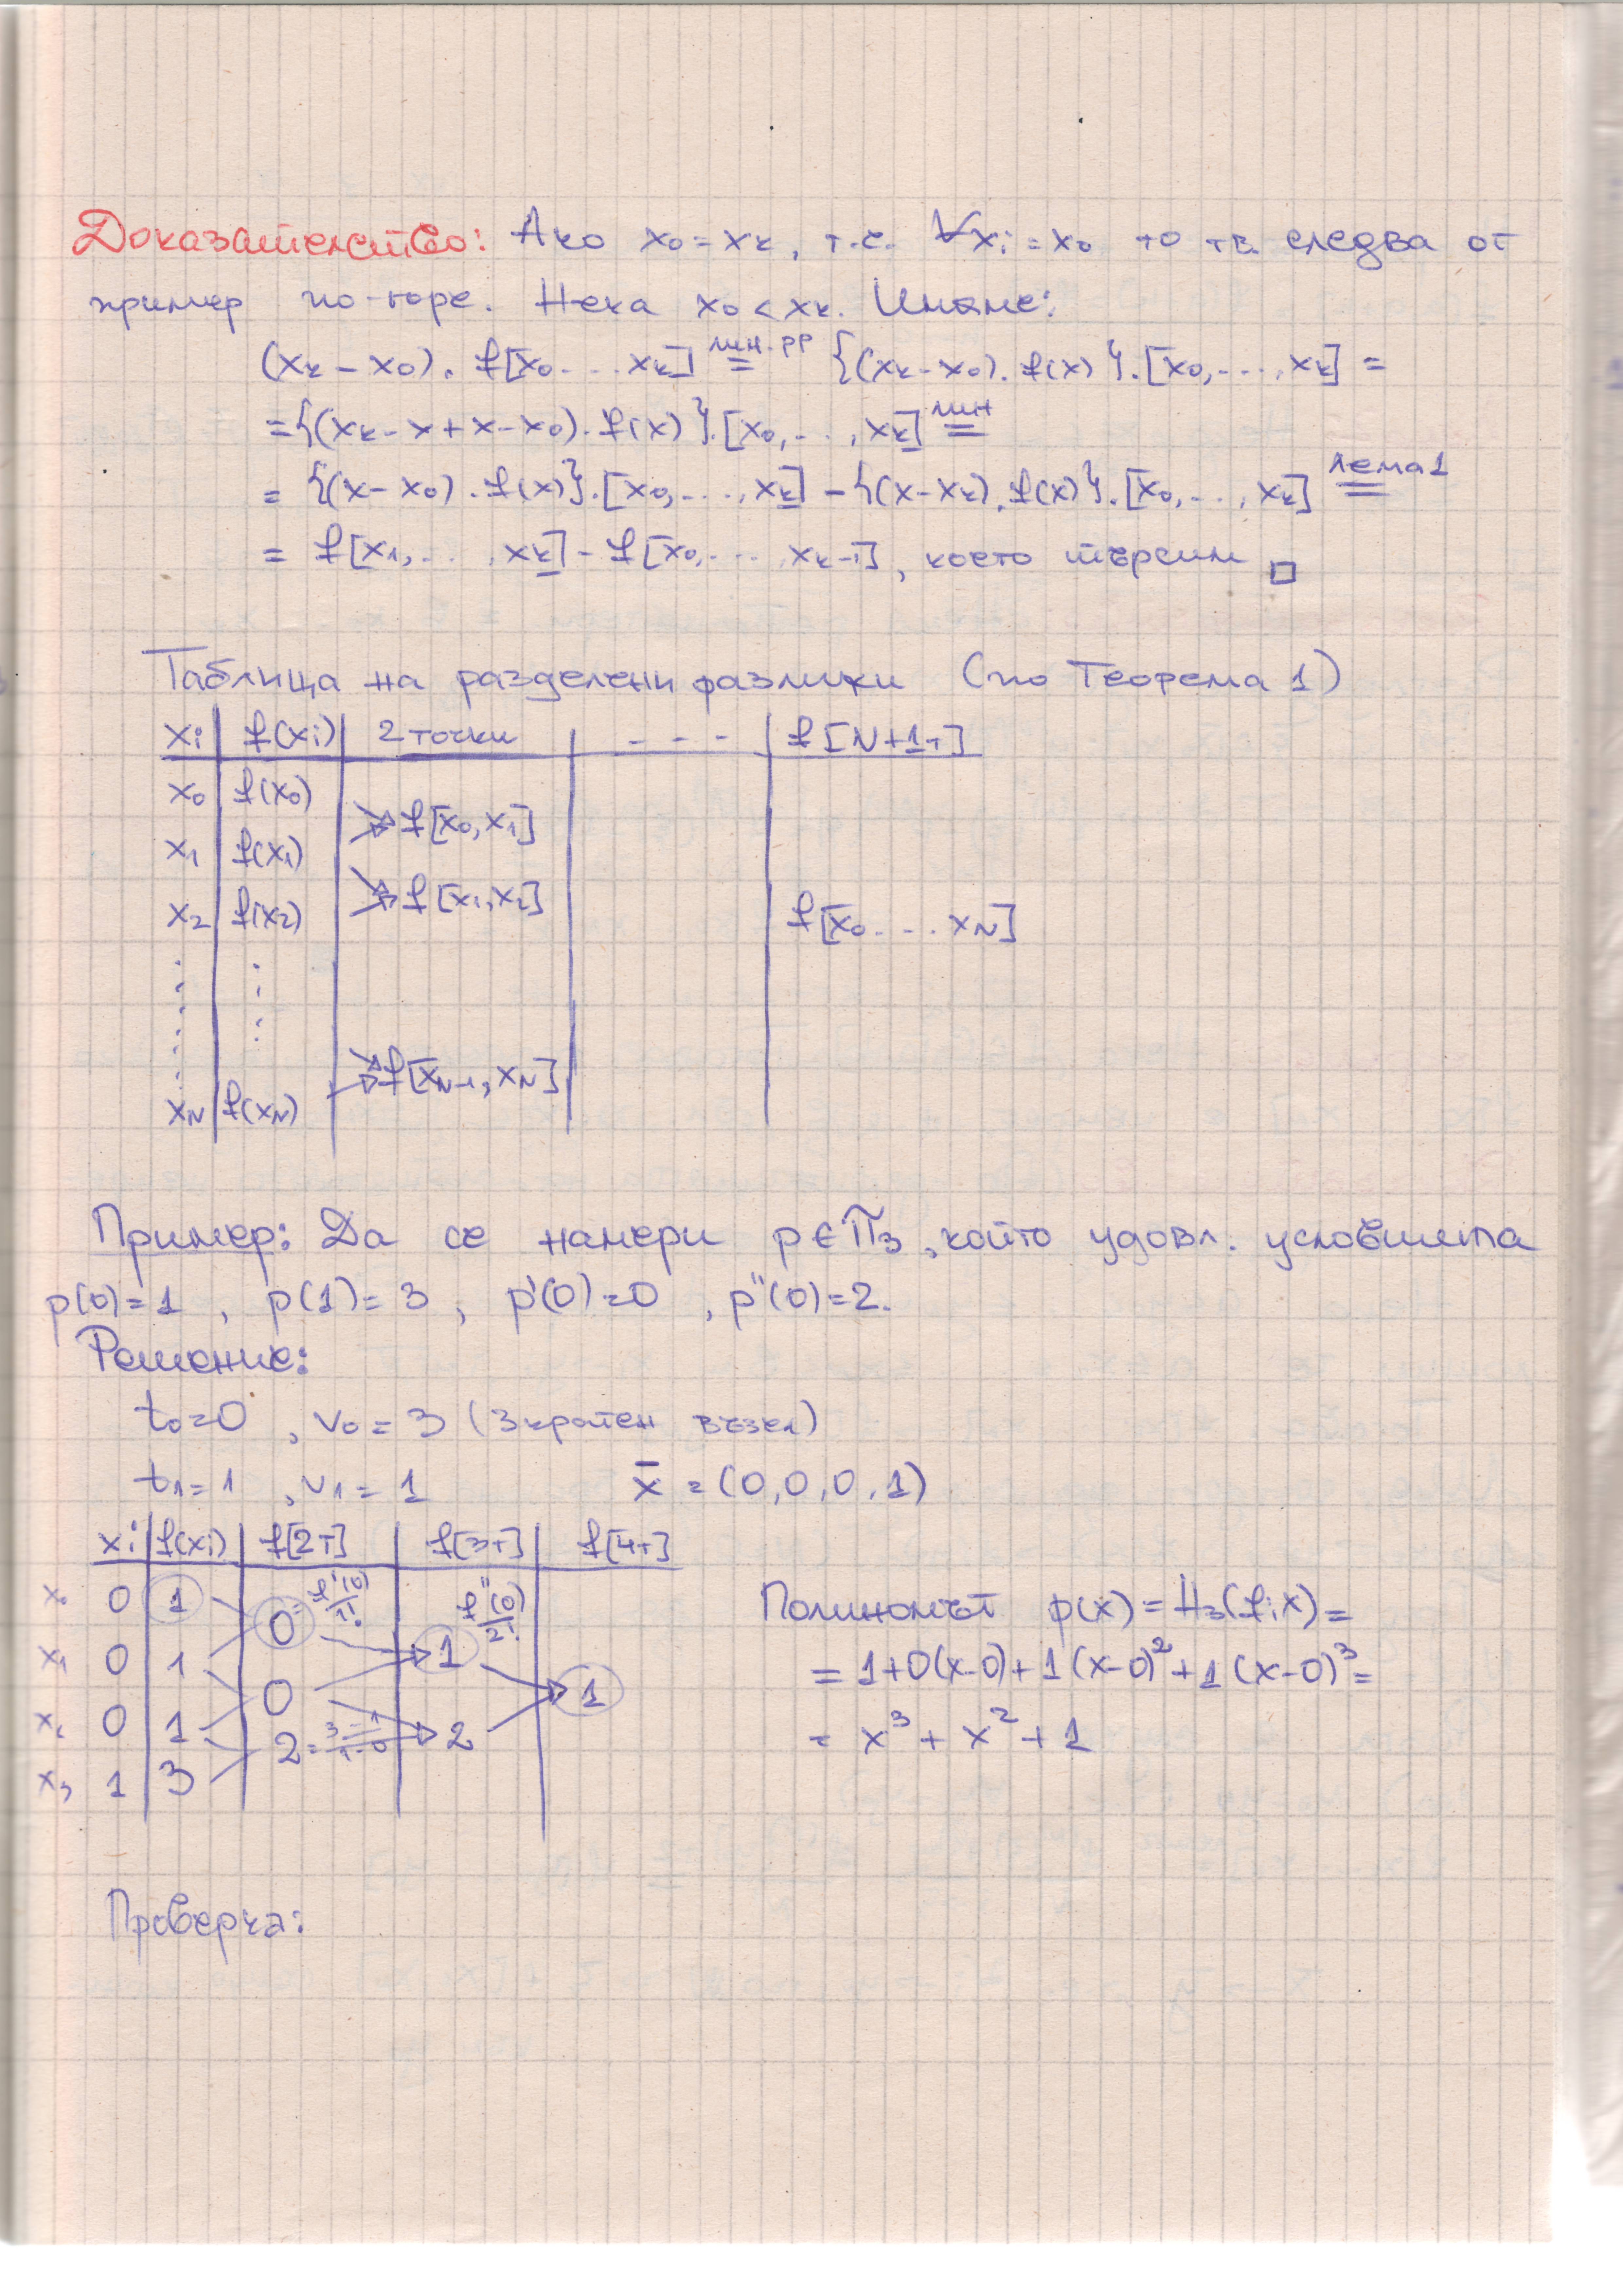 Доказателство: Ако x₀ = xₖ, т.е. ∀xᵢ = x₀ то тв. следва от
пример по-горе. Нека x₀ < xₖ. Имаме:
(xₖ - x₀). f[x₀...xₖ] лин.рр = {(xₖ - x₀). f(x)}.[x₀,...,xₖ] =
= {(xₖ - x + x - x₀). f(x)}.[x₀,...,xₖ] лин =
= {(x - x₀). f(x)}.[x₀,...,xₖ] - {(x - xₖ). f(x)}.[x₀,...,xₖ] лема1 =
= f[x₁,...,xₖ] - f[x₀,...,xₖ₋₁], което търсим □
Таблица на разделени разлики (по Теорема 1)
xᵢ f(xᵢ) 2 точки - - - f[N+1т]
x₀ f(x₀)
f[x₀,x₁]
x₁ f(x₁)
f[x₁,x₂]
x₂ f(x₂) f[x₀...xN]
f[xN₋₁,xN]
xN f(xN)
Пример: Да се намери p∈π₃, който удовл. условията
p(0)=1, p(1)=3, p'(0)=0, p''(0)=2.
Решение:
t₀=0, v₀=3 (3 кратен възел)
t₁=1, v₁=1 x̄ = (0,0,0,1)
xᵢ f(xᵢ) f[2т] f[3т] f[4т]
x₀ 0 1
0 = f'(0)/1! f''(0)/2!
x₁ 0 1 1
0 1
x₂ 0 1
2 = 3-1/1-0 2
x₃ 1 3
Полиномът p(x) = H₃(f;x) =
= 1+0(x-0)+1(x-0)²+1(x-0)³ =
= x³ + x² + 1
Проверка: